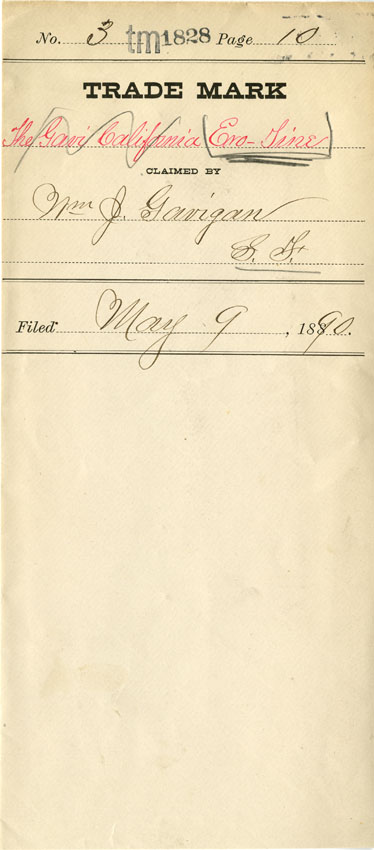 No. 3 tm1828 Page 10
TRADE MARK
The Gavi California Evo-Tine
CLAIMED BY
Wm J. Gavigan
S. F.
Filed May 9, 1890.